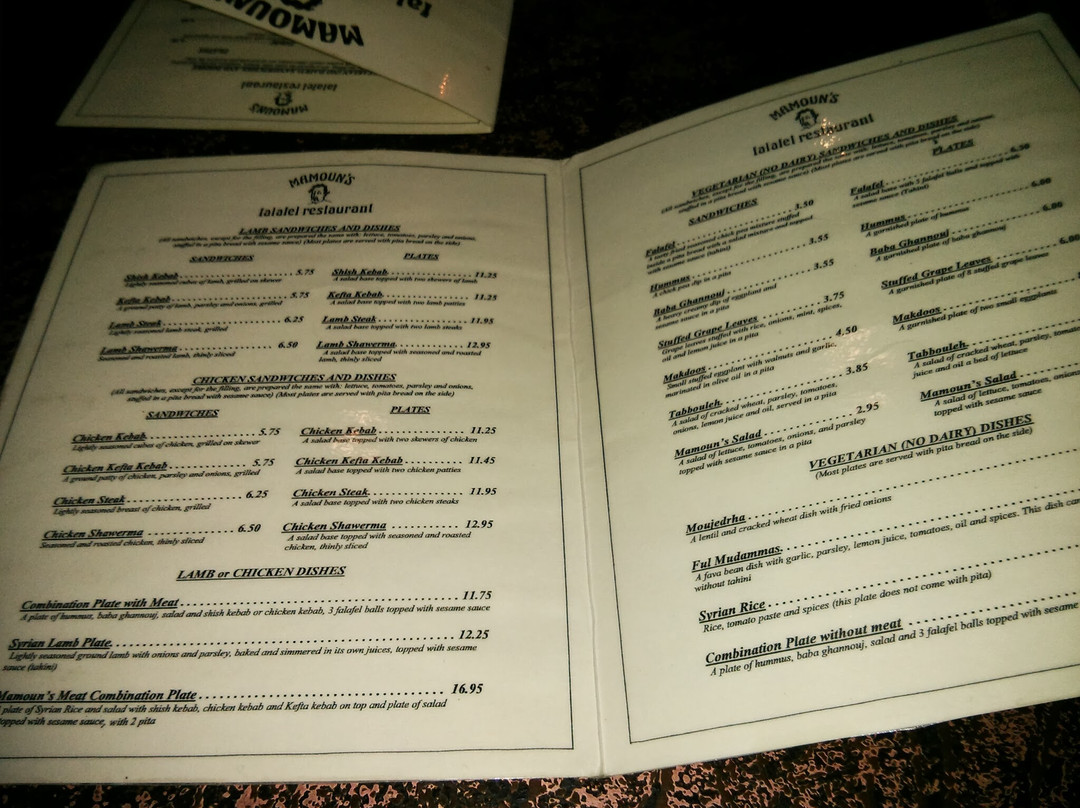 MAMOUN'S
falafel restaurant
LAMB SANDWICHES AND DISHES
(All sandwiches, except for the filling, are prepared the same with: lettuce, tomatoes, parsley and onions,
stuffed in a pita bread with sesame sauce) (Most plates are served with pita bread on the side)
SANDWICHES
Shish Kebab 5.75
Lightly seasoned cubes of lamb, grilled on skewer
Kefta Kebab 5.75
A ground patty of lamb, parsley and onions, grilled
Lamb Steak 6.25
Lightly seasoned lamb steak, grilled
Lamb Shawerma 6.50
Seasoned and roasted lamb, thinly sliced
PLATES
Shish Kebab 11.25
A salad base topped with two skewers of lamb
Kefta Kebab 11.25
A salad base topped with two lamb patties
Lamb Steak 11.95
A salad base topped with two lamb steaks
Lamb Shawerma 12.95
A salad base topped with seasoned and roasted
lamb, thinly sliced
CHICKEN SANDWICHES AND DISHES
(All sandwiches, except for the filling, are prepared the same with: lettuce, tomatoes, parsley and onions,
stuffed in a pita bread with sesame sauce) (Most plates are served with pita bread on the side)
SANDWICHES
Chicken Kebab 5.75
Lightly seasoned cubes of chicken, grilled on skewer
Chicken Kefta Kebab 5.75
A ground patty of chicken, parsley and onions, grilled
Chicken Steak 6.25
Lightly seasoned breast of chicken, grilled
Chicken Shawerma 6.50
Seasoned and roasted chicken, thinly sliced
PLATES
Chicken Kebab 11.25
A salad base topped with two skewers of chicken
Chicken Kefta Kebab 11.45
A salad base topped with two chicken patties
Chicken Steak 11.95
A salad base topped with two chicken steaks
Chicken Shawerma 12.95
A salad base topped with seasoned and roasted
chicken, thinly sliced
LAMB or CHICKEN DISHES
Combination Plate with Meat 11.75
A plate of hummus, baba ghannouj, salad and shish kebab or chicken kebab, 3 falafel balls topped with sesame sauce
Syrian Lamb Plate 12.25
Lightly seasoned ground lamb with onions and parsley, baked and simmered in its own juices, topped with sesame
sauce (tahini)
Mamoun's Meat Combination Plate 16.95
plate of Syrian Rice and salad with shish kebab, chicken kebab and Kefta kebab on top and plate of salad
topped with sesame sauce, with 2 pita
MAMOUN'S
falafel restaurant
VEGETARIAN (NO DAIRY) SANDWICHES AND DISHES
(All sandwiches, except for the filling, are prepared the same with: lettuce, tomatoes, parsley and onions,
stuffed in a pita bread with sesame sauce) (Most plates are served with pita bread on the side)
SANDWICHES
Falafel 3.50
A tasty fried seasoned chick pea mixture stuffed
inside a pita bread with a salad mixture and topped
with sesame sauce (tahini)
Hummus 3.55
A chick pea dip in a pita
Baba Ghannouj 3.55
A heavy creamy dip of eggplant and
sesame sauce in a pita
Stuffed Grape Leaves 3.75
Grape leaves stuffed with rice, onions, mint, spices,
oil and lemon juice in a pita
Makdoos 4.50
Small stuffed eggplant with walnuts and garlic,
marinated in olive oil in a pita
Tabbouleh 3.85
A salad of cracked wheat, parsley, tomatoes,
onions, lemon juice and oil, served in a pita
Mamoun's Salad 2.95
A salad of lettuce, tomatoes, onions, and parsley
topped with sesame sauce in a pita
PLATES
Falafel 6.50
A salad base with 5 falafel balls and topped with
sesame sauce (Tahini)
Hummus 6.00
A garnished plate of hummus
Baba Ghannouj 6.00
A garnished plate of baba ghannouj
Stuffed Grape Leaves 6.00
A garnished plate of 8 stuffed grape leaves
Makdoos
A garnished plate of two small eggplants
Tabbouleh
A salad of cracked wheat, parsley,
juice and oil a bed of lettuce
Mamoun's Salad
A salad of lettuce, tomatoes, onions
topped with sesame sauce
VEGETARIAN (NO DAIRY) DISHES
(Most plates are served with pita bread on the side)
Moujedrha
A lentil and cracked wheat dish with fried onions
Ful Mudammas
A fava bean dish with garlic, parsley, lemon juice, tomatoes, oil and spices. This dish
without tahini
Syrian Rice
Rice, tomato paste and spices (this plate does not come with pita)
Combination Plate without meat
A plate of hummus, baba ghannouj, salad and 3 falafel balls topped with sesame
MAMOUN'S
falafel restaurant
MAMOUN